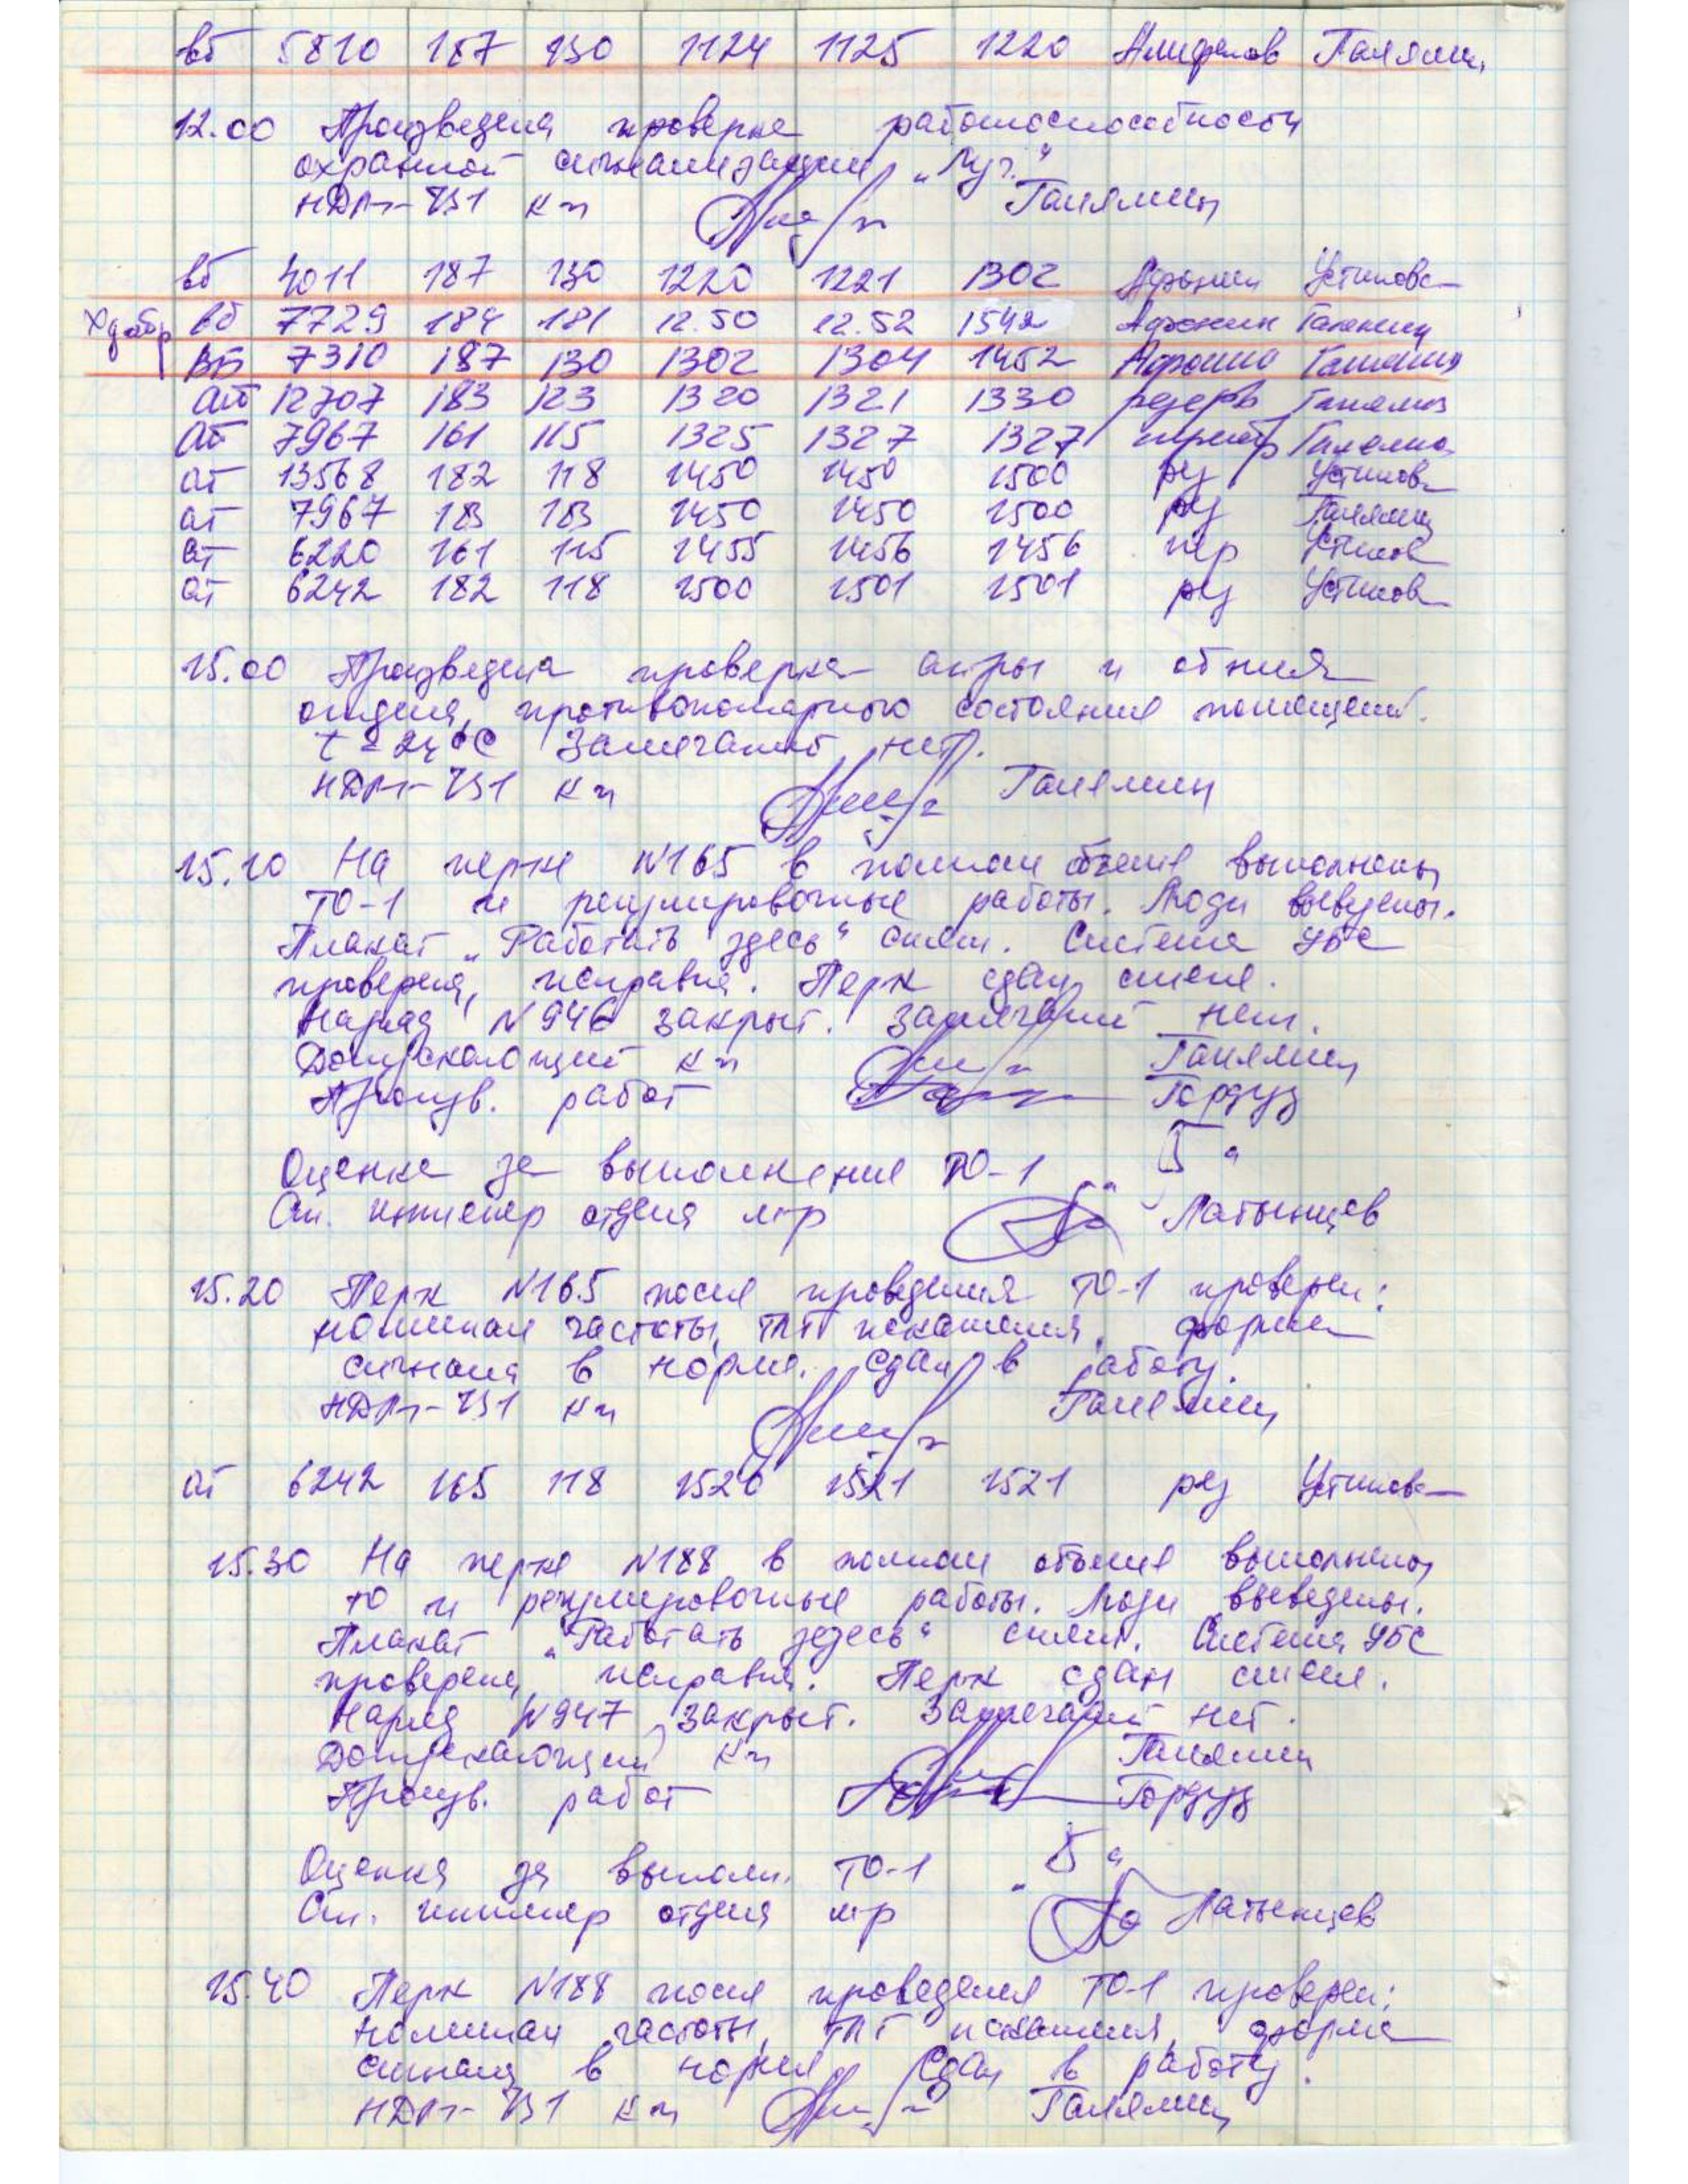 вб 5810 187 130 1124 1125 1220
12.00 Произведена проверка работоспособности
охранной сигнализации „Луч"
НДРп-ЧЗ1 к-н Галямин
вб 4011 187 130 1220 1221 1302 Афонин Устинова
вб 7729 184 181 12.50 12.52 1542 Афонин Галямин
ВБ 7310 187 130 1302 1304 1452 Афонин Галямин
ат 12707 183 123 1320 1321 1330 резерв Галямин
ат 7967 161 115 1325 1327 1327 Галямин
ат 13568 182 118 1450 1450 1500 рез Устинов
ат 7967 183 183 1450 1450 1500 рез Галямин
ат 6220 161 115 1455 1456 1456 пер Устинов
ат 6242 182 118 1500 1501 1501 рез Устинов
15.00 Произведена проверка ап-ры и об-ния
отдела, противопожарного состояния помещений.
t = 24°С Замечаний нет.
НДРп-ЧЗ1 к-н Галямин
15.10 На перке №165 в полном объеме выполнены
ТО-1 и регулировочные работы. Люди выведены.
Плакат „Работать здесь" снят. Система УБС
проверена, исправна. Перк сдан смене.
Наряд №946 закрыт. Замечаний нет.
Допускающий к-н Галямин
Произв. работ Гордуз
Оценка за выполнение ТО-1 „5"
Ст. инженер отдела м-р Латынцев
15.20 Перк №165 после проведения ТО-1 проверен:
номинал частоты, ТЛГ искажения, форма
сигнала в норме. Сдан в работу.
НДРп-ЧЗ1 к-н Галямин
ат 6242 165 118 1520 1521 1521 рез Устинов
15.30 На перке №188 в полном объеме выполнены
ТО и регулировочные работы. Люди выведены.
Плакат „Работать здесь" снят. Система УБС
проверена, исправна. Перк сдан смене.
Наряд №947 закрыт. Замечаний нет.
Допускающий к-н Галямин
Произв. работ Гордуз
Оценка за выполн. ТО-1 „5"
Ст. инженер отдела м-р Латынцев
15.40 Перк №188 после проведения ТО-1 проверен:
номинал частоты, ТЛГ искажения, форма
сигнала в норме. Сдан в работу.
НДРп-ЧЗ1 к-н Галямин